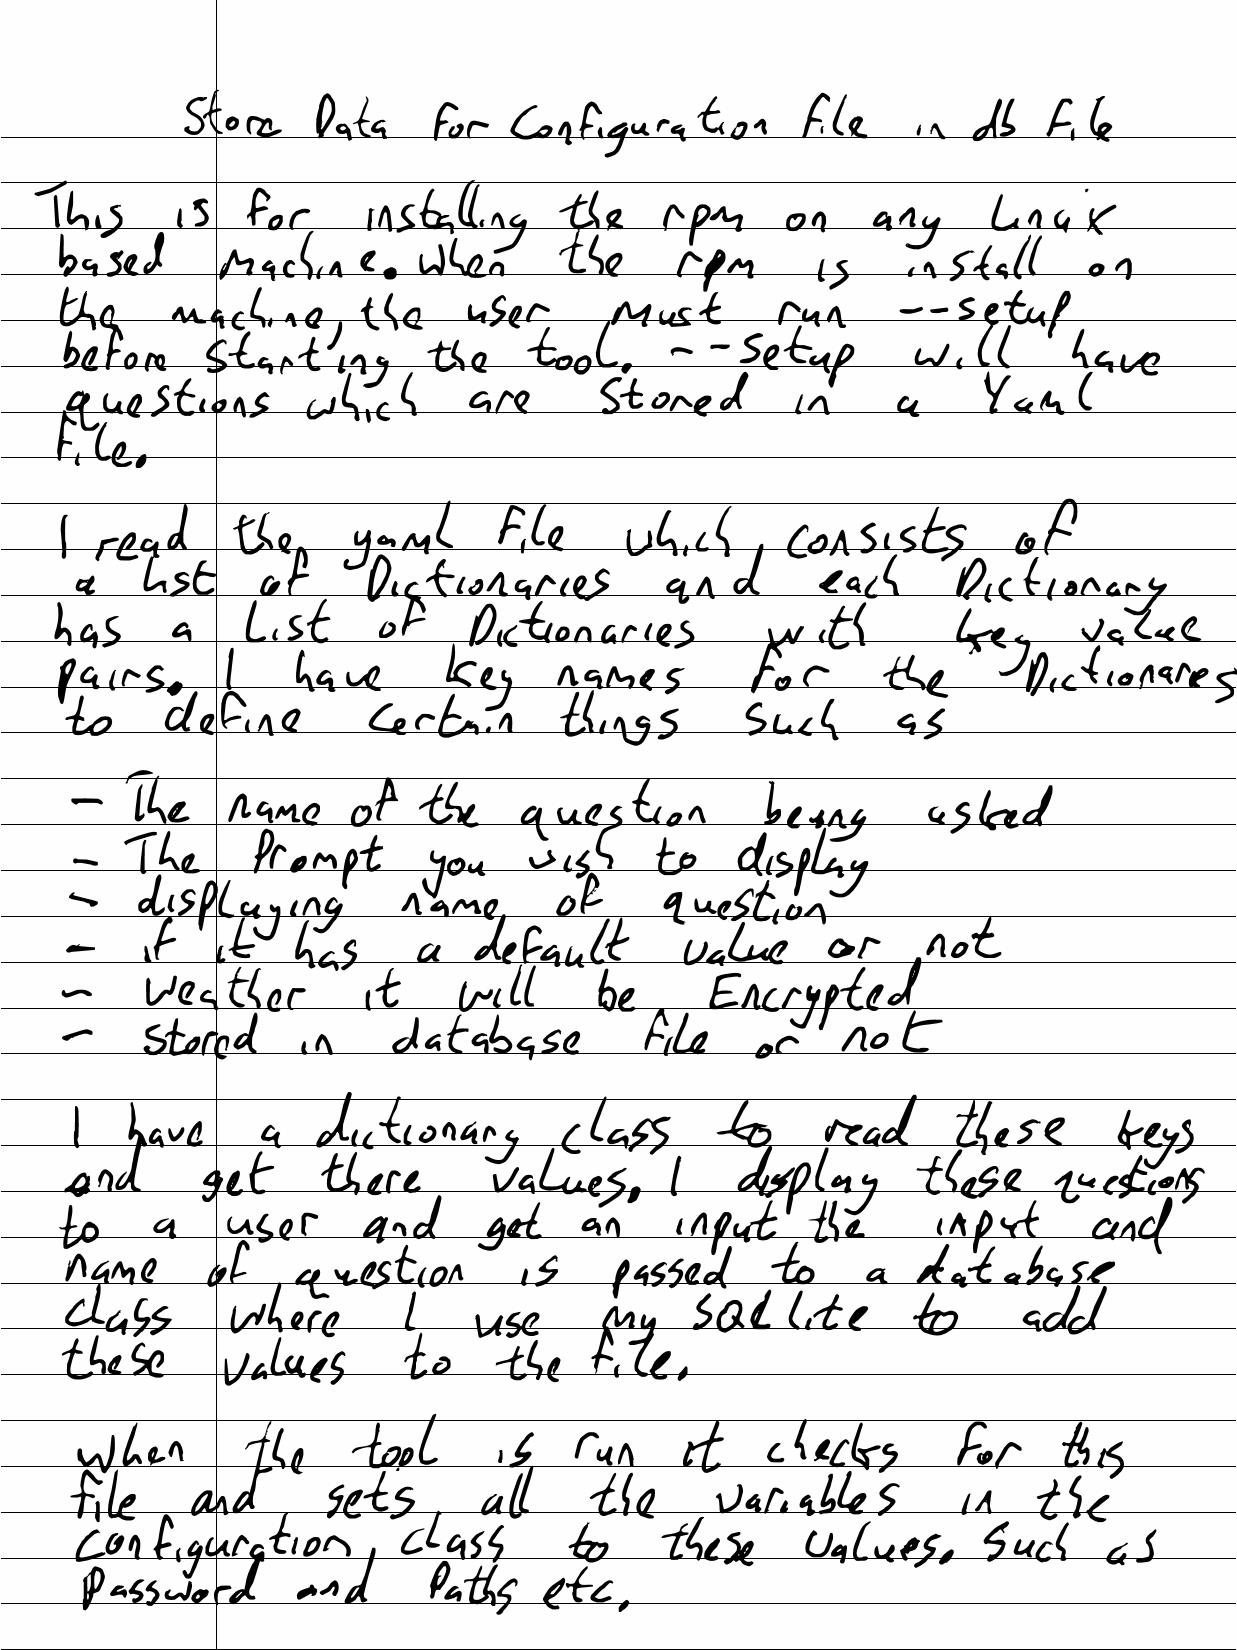 Store Data for Configuration file in db file
This is for installing the rpm on any Linux
based machine. When the rpm is install on
the machine, the user must run --setup
before starting the tool. --setup will have
questions which are stored in a Yaml
file.
I read the yaml file which consists of
a list of Dictionaries and each Dictionary
has a List of Dictionaries with key value
pairs. I have key names for the Dictionares
to define certain things such as
- The name of the question being asked
- The Prompt you wish to display
- displaying name of question
- if it has a default value or not
- weather it will be Encrypted
- stored in database file or not
I have a dictionary class to read these keys
and get there values. I display these questions
to a user and get an input the input and
name of question is passed to a database
class where I use my SQLlite to add
these values to the file.
When the tool is run it checks for this
file and sets all the variables in the
configuration class to these values. Such as
Password and Paths etc.